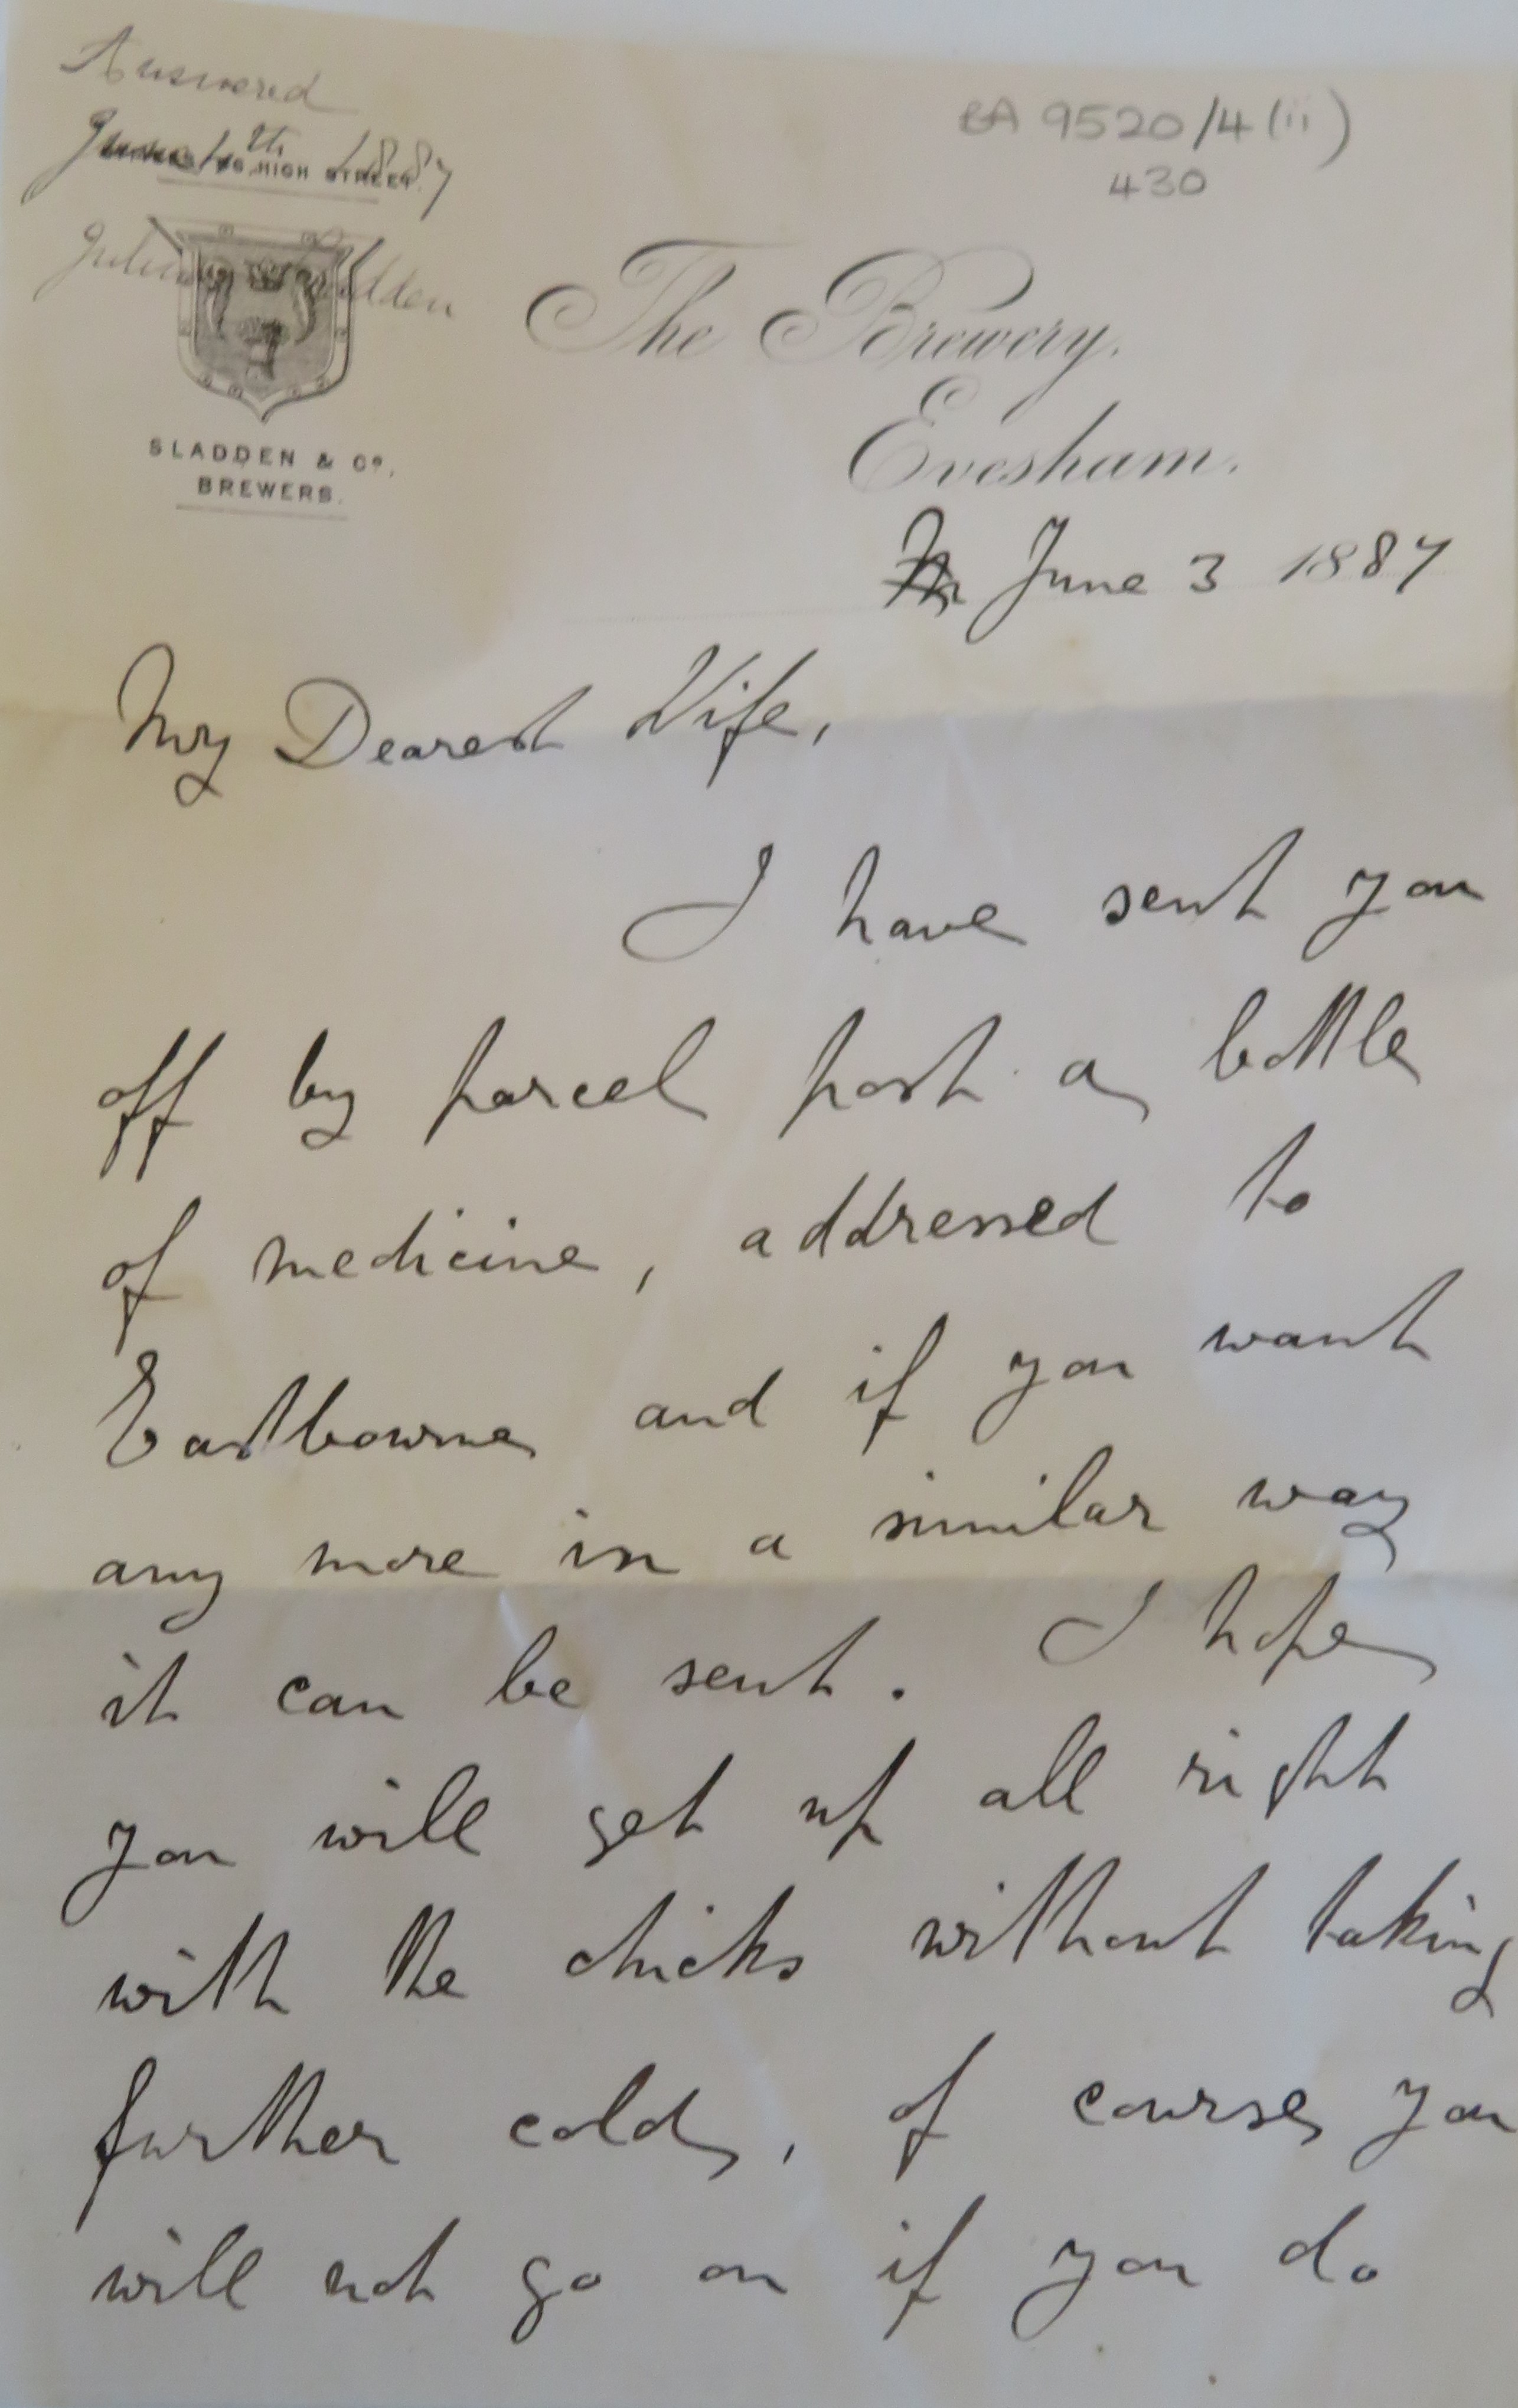 Answered
June 1887
BA 9520/4 (ii)
430
HIGH STREET.
Julius Sladden
SLADDEN & Co.,
BREWERS.
The Brewery,
Evesham.
June 3 1887
My Dearest Wife,
I have sent you
off by parcel post a bottle
of medicine, addressed to
Eastbourne and if you want
any more in a similar way
it can be sent. I hope
you will get up all right
with the chicks without taking
further cold, of course you
will not go on if you do